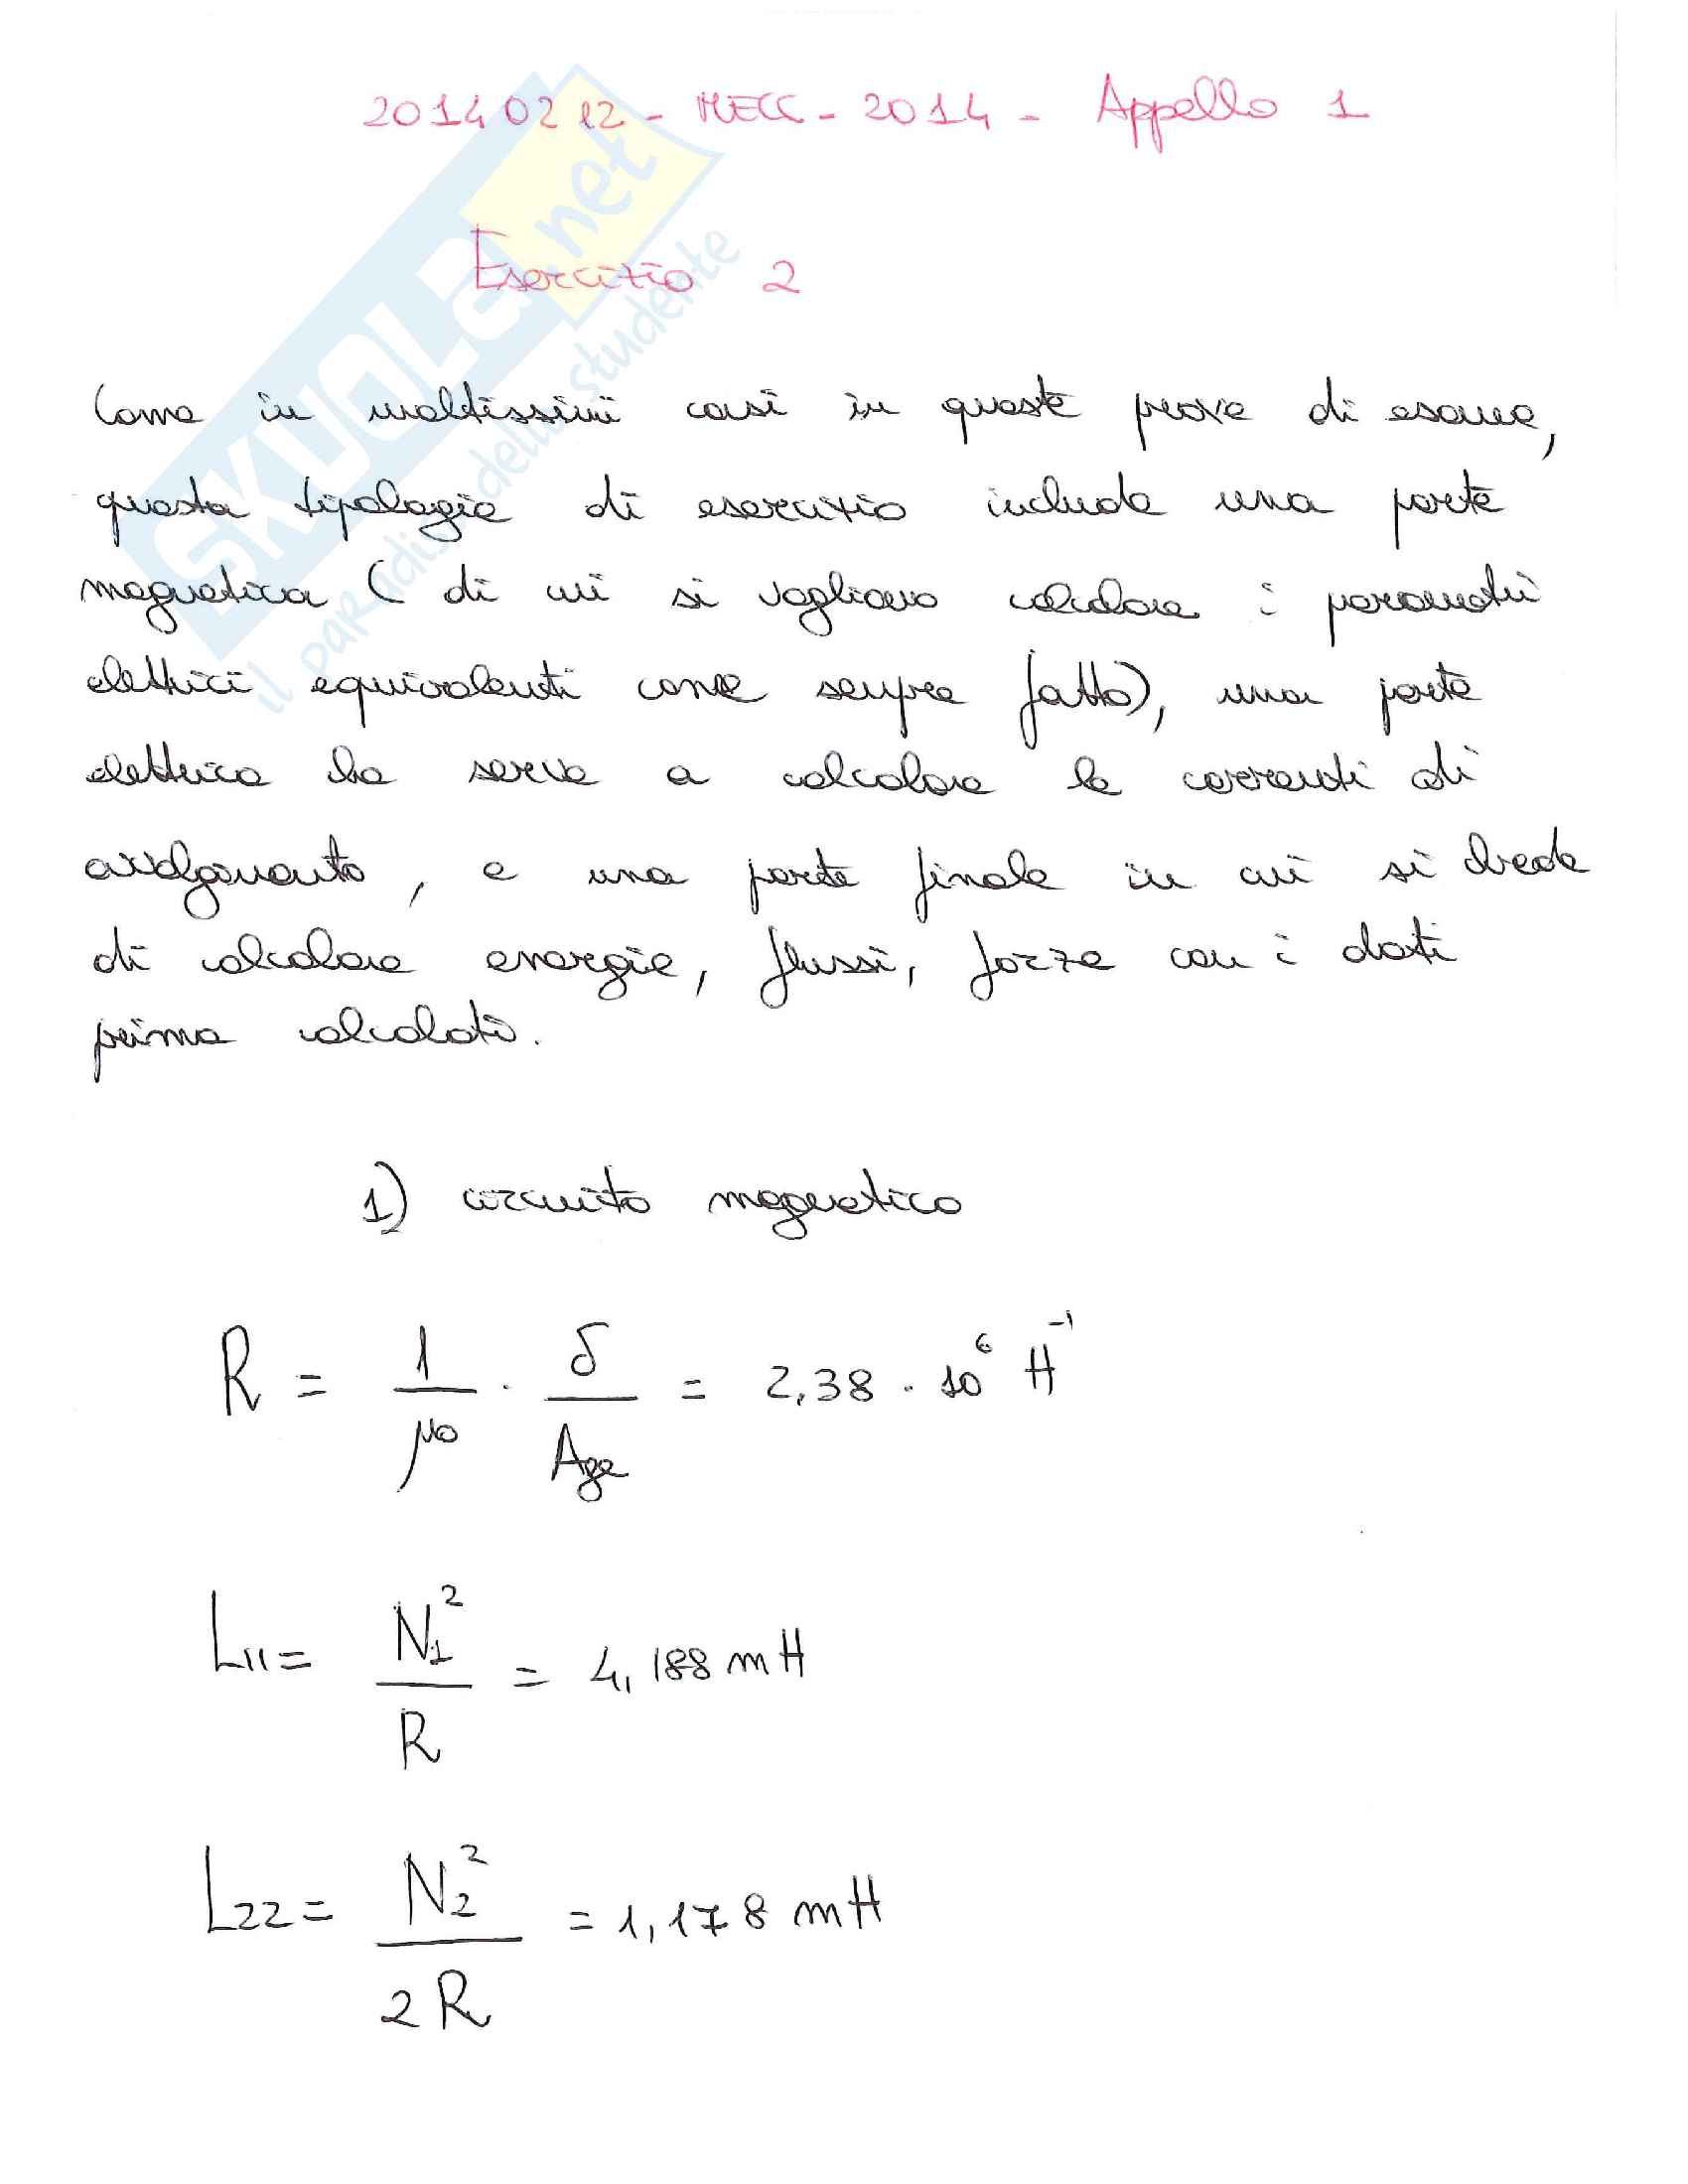 20140212 - MECC - 2014 - Appello 1
Esercizio 2
Come in moltissimi casi in queste prove di esame,
questa tipologia di esercizio include una parte
magnetica (di cui si vogliono calcolare i parametri
elettrici equivalenti come sempre fatto), una parte
elettrica che serve a calcolare le correnti di
avvolgimento, e una parte finale in cui si chiede
di calcolare energie, flussi, forze con i dati
prima calcolati.
1) circuito magnetico
R = 1/μ0 · δ/Age = 2,38 · 10^6 H^-1
L11 = N1^2/R = 4,188 mH
L22 = N2^2/2R = 1,178 mH
SKUOLA.net
il paradiso dello studente